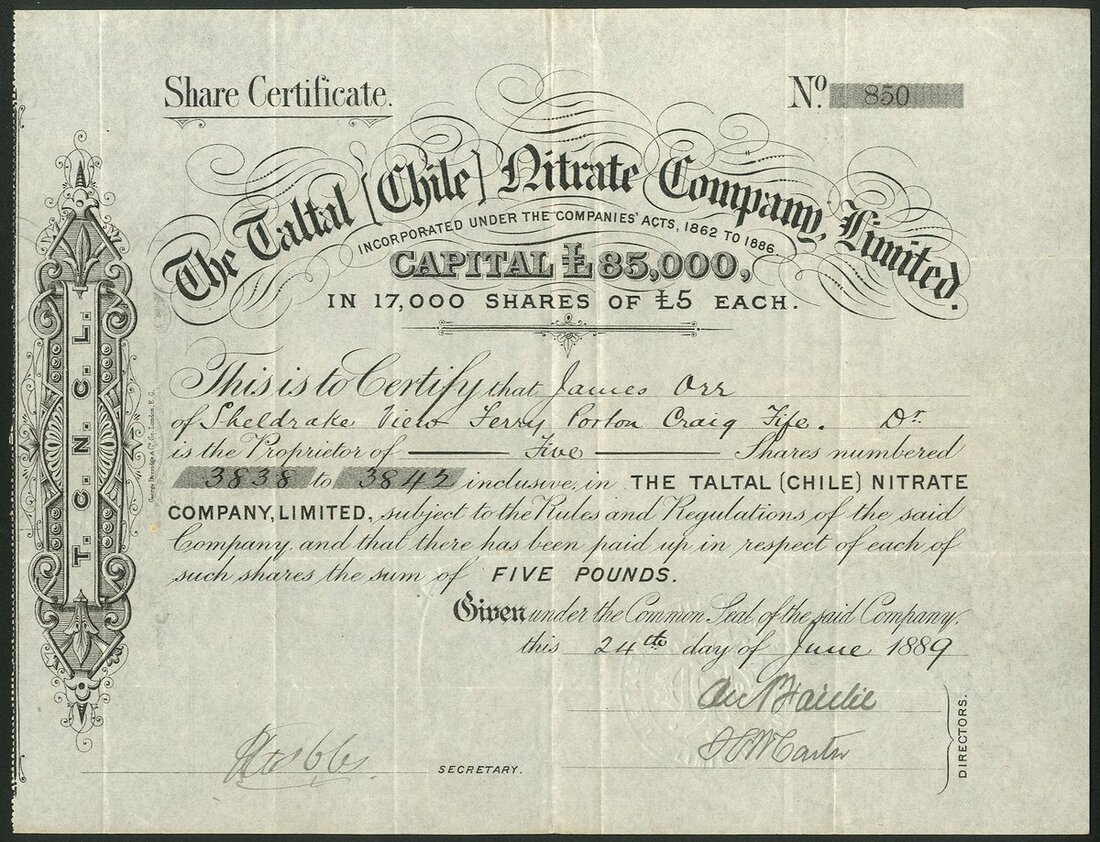 Share Certificate.
No. 850
The Taltal [Chile] Nitrate Company, Limited.
INCORPORATED UNDER THE COMPANIES' ACTS, 1862 TO 1886
CAPITAL £85,000,
IN 17,000 SHARES OF £5 EACH.
T. C. N. C. L.
This is to Certify that James Orr
of Sheldrake View Ferry Porton Craig Fife. Dr.
is the Proprietor of Five Shares numbered
3838 to 3842 inclusive, in THE TALTAL (CHILE) NITRATE
COMPANY, LIMITED, subject to the Rules and Regulations of the said
Company, and that there has been paid up in respect of each of
such shares the sum of FIVE POUNDS.
Given under the Common Seal of the said Company,
this 24th day of June 1889
DIRECTORS.
SECRETARY.